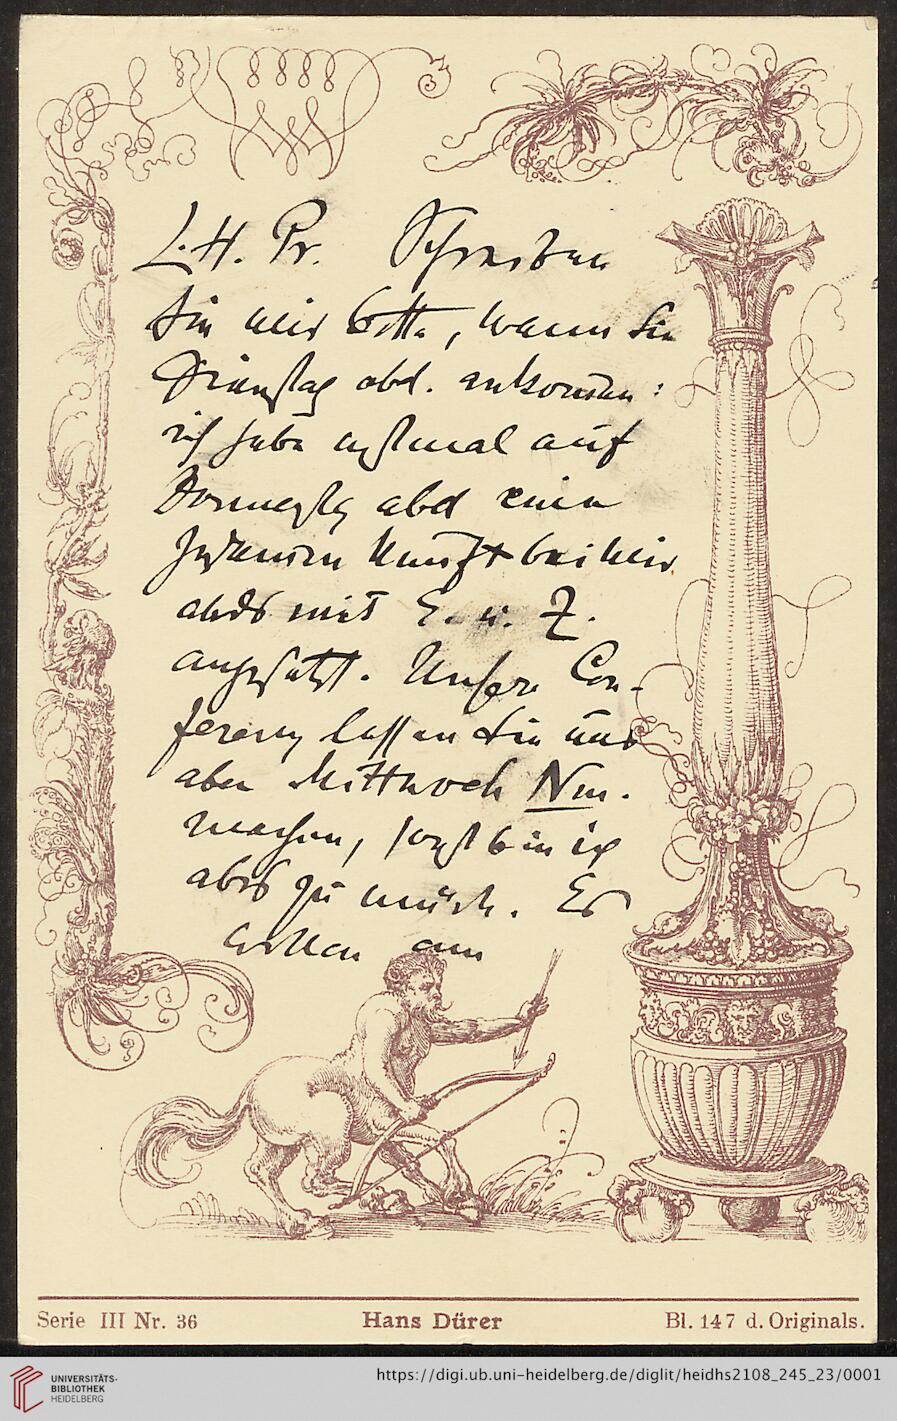 L. H. Pr. Schreiben
Sie mir bitte, wann Sie
Dienstag abd. ankommen:
ich habe erstmal auf
Donnerstg abd eine
zusammenkunft bei mir
abds mit E. u. Z.
angesetzt. Unsere Con-
ferenz lassen Sie uns
aber Mittwoch Nm.
machen, sonst bin ich
abds zu müde. Es
wollen am
Serie III Nr. 36
Hans Dürer
Bl. 147 d. Originals.
UNIVERSITÄTS-
BIBLIOTHEK
HEIDELBERG
https://digi.ub.uni-heidelberg.de/diglit/heidhs2108_245_23/0001